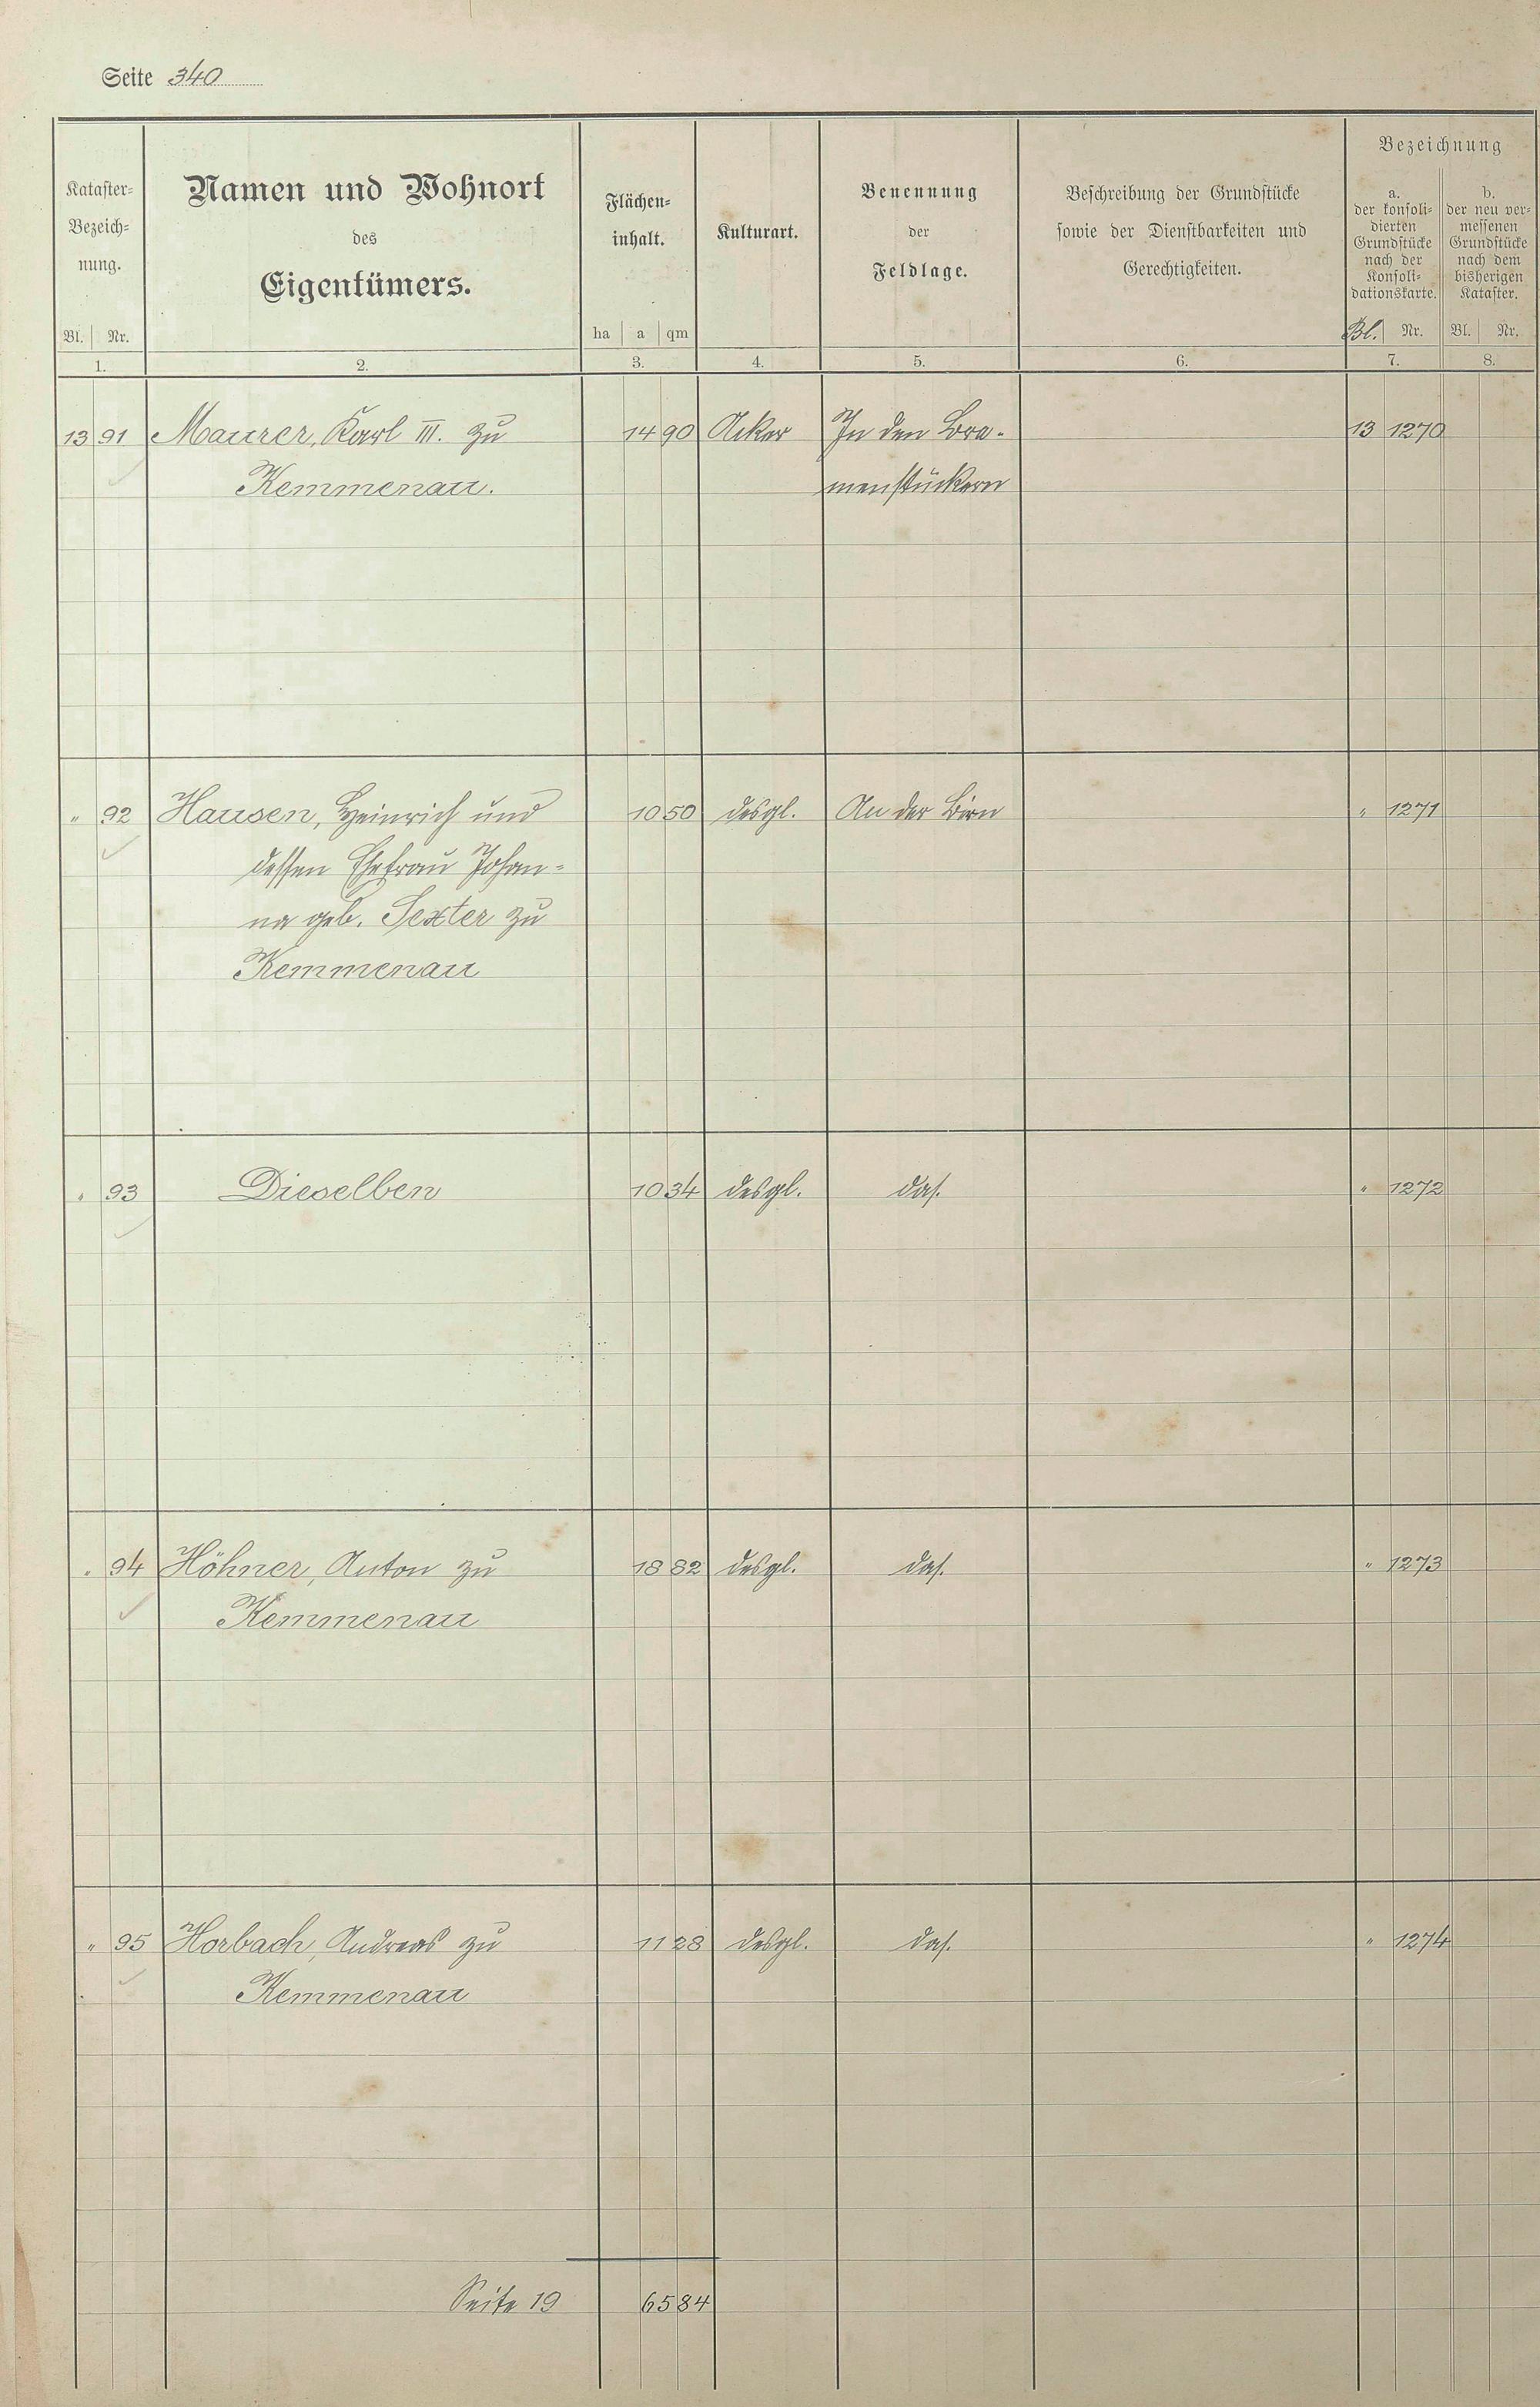 Seite 340
Kataster-
Bezeich-
nung.
Bl. Nr.
1.
Namen und Wohnort
des
Eigentümers.
2.
Flächen-
inhalt.
ha a qm
3.
Kulturart.
4.
Benennung
der
Feldlage.
5.
Beschreibung der Grundstücke
sowie der Dienstbarkeiten und
Gerechtigkeiten.
6.
Bezeichnung
a.
der konsoli-
dierten
Grundstücke
nach der
Konsoli-
dationskarte.
Bl. Nr.
7.
b.
der neu ver-
messenen
Grundstücke
nach dem
bisherigen
Kataster.
Bl. Nr.
8.
13 91 Maurer, Karl III. zu 14 90 Acker In den 13 1270
Kemmenau. menstückern
" 92 Hausen, Heinrich und 10 50 desgl. An der Birn " 1271
dessen Ehefrau Johan-
na geb. Sexter zu
Kemmenau
" 93 Dieselben 10 34 desgl. das. " 1272
" 94 Höhner, Anton zu 18 82 desgl. das. " 1273
Kemmenau
" 95 Horbach, Andreas zu 11 28 desgl. das. " 1274
Kemmenau
Seite 19 65 84